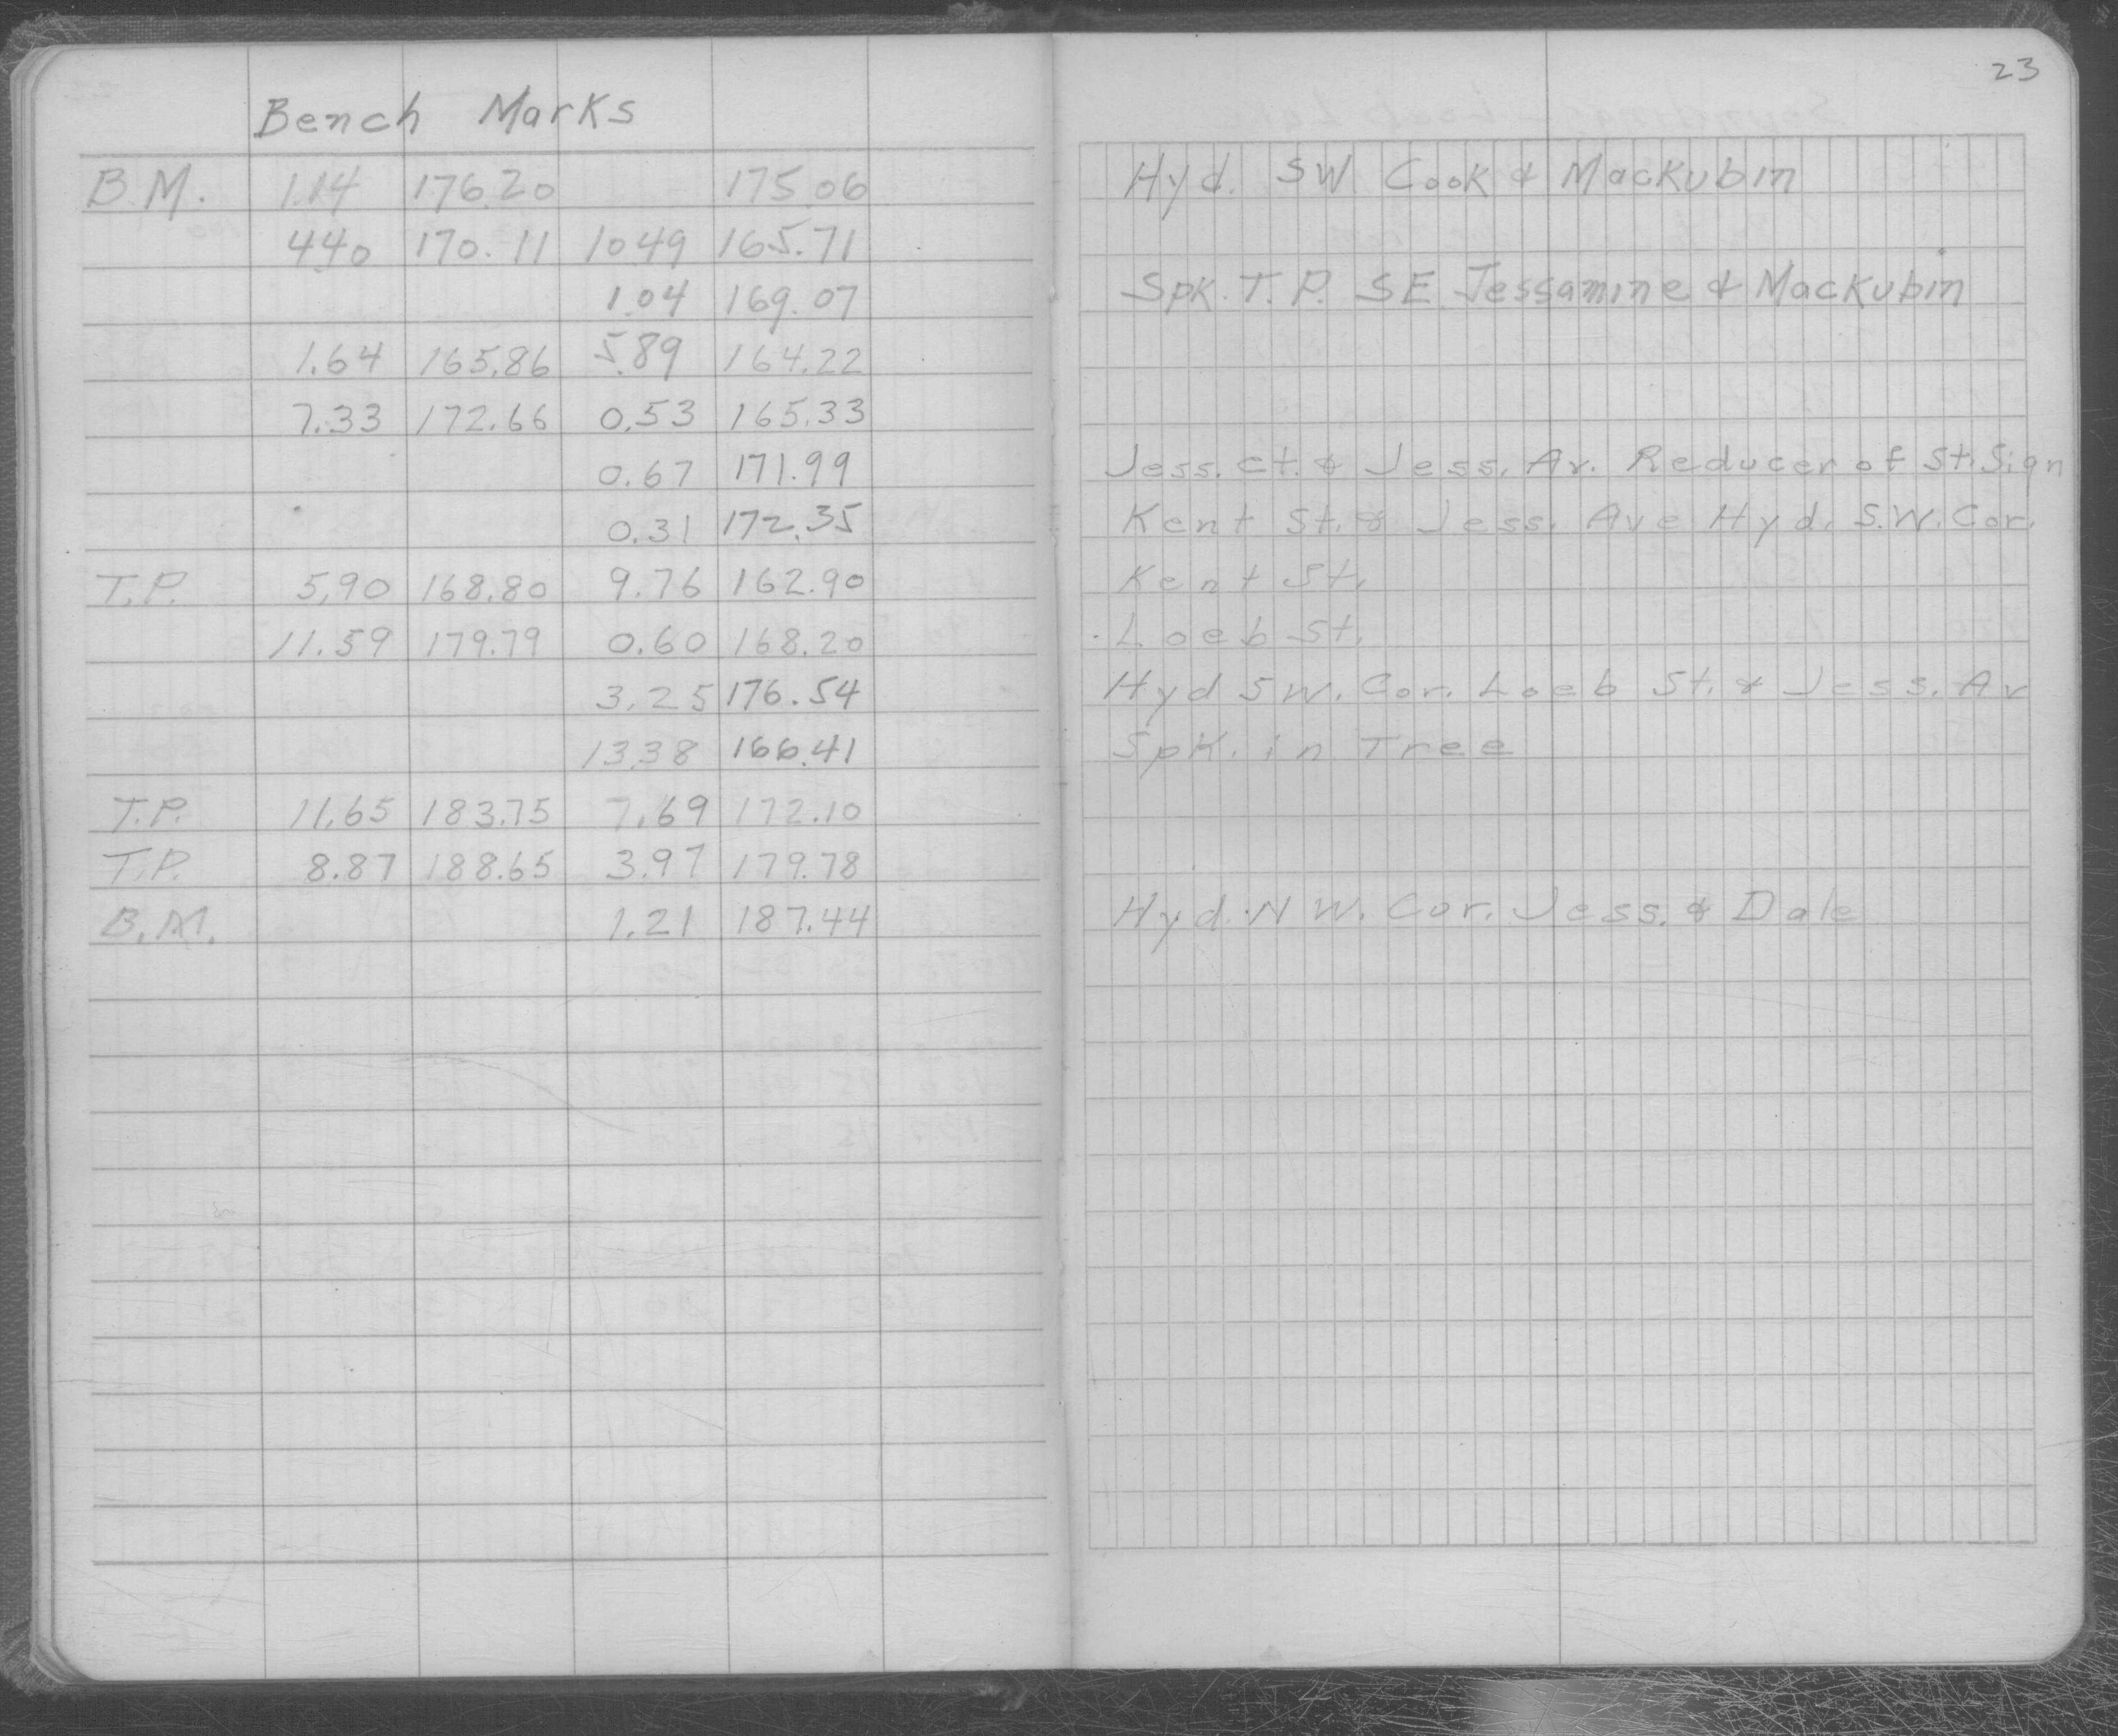 23
Bench Marks
B.M. 1.14 176.20 175.06 Hyd. SW Cook & Mackubin
4.40 170.11 10.49 165.71
1.04 169.07 Spk. T.P. SE Jessamine & Mackubin
1.64 165.86 5.89 164.22
7.33 172.66 0.53 165.33
0.67 171.99 Jess. ct. & Jess. Av. Reducer of St. Sign
0.31 172.35 Kent St. & Jess. Ave Hyd. S.W. Cor.
T.P. 5.90 168.80 9.76 162.90 Kent St.
11.59 179.79 0.60 168.20 Loeb St.
3.25 176.54 Hyd SW. Cor. Loeb St. & Jess. Av
13.38 166.41 Spk. in Tree
T.P. 11.65 183.75 7.69 172.10
T.P. 8.87 188.65 3.97 179.78
B.M. 1.21 187.44 Hyd. N W. Cor. Jess. & Dale